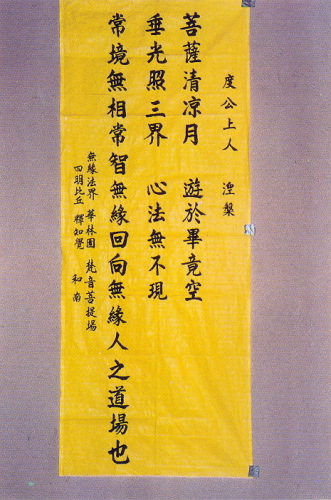 度公上人 涅槃
菩薩清凉月 遊於畢竟空
垂光照三界 心法無不現
常境無相常智無緣回向無緣人之道場也
無緣法界 華林園 梵音菩提場
四明比丘 釋如覺 和南